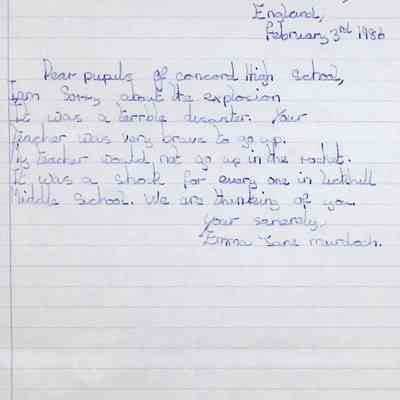 England,
February 3rd 1986
Dear pupuls of concord High School,
I am Sorry about the explosion
It was a terrible disaster. Your
Teacher was very brave to go up.
My teacher would not go up in the rocket.
It was a shock for every one in Tickhill
Middle School. We are thinking of you
your sincerely,
Emma Jane Murdoch.